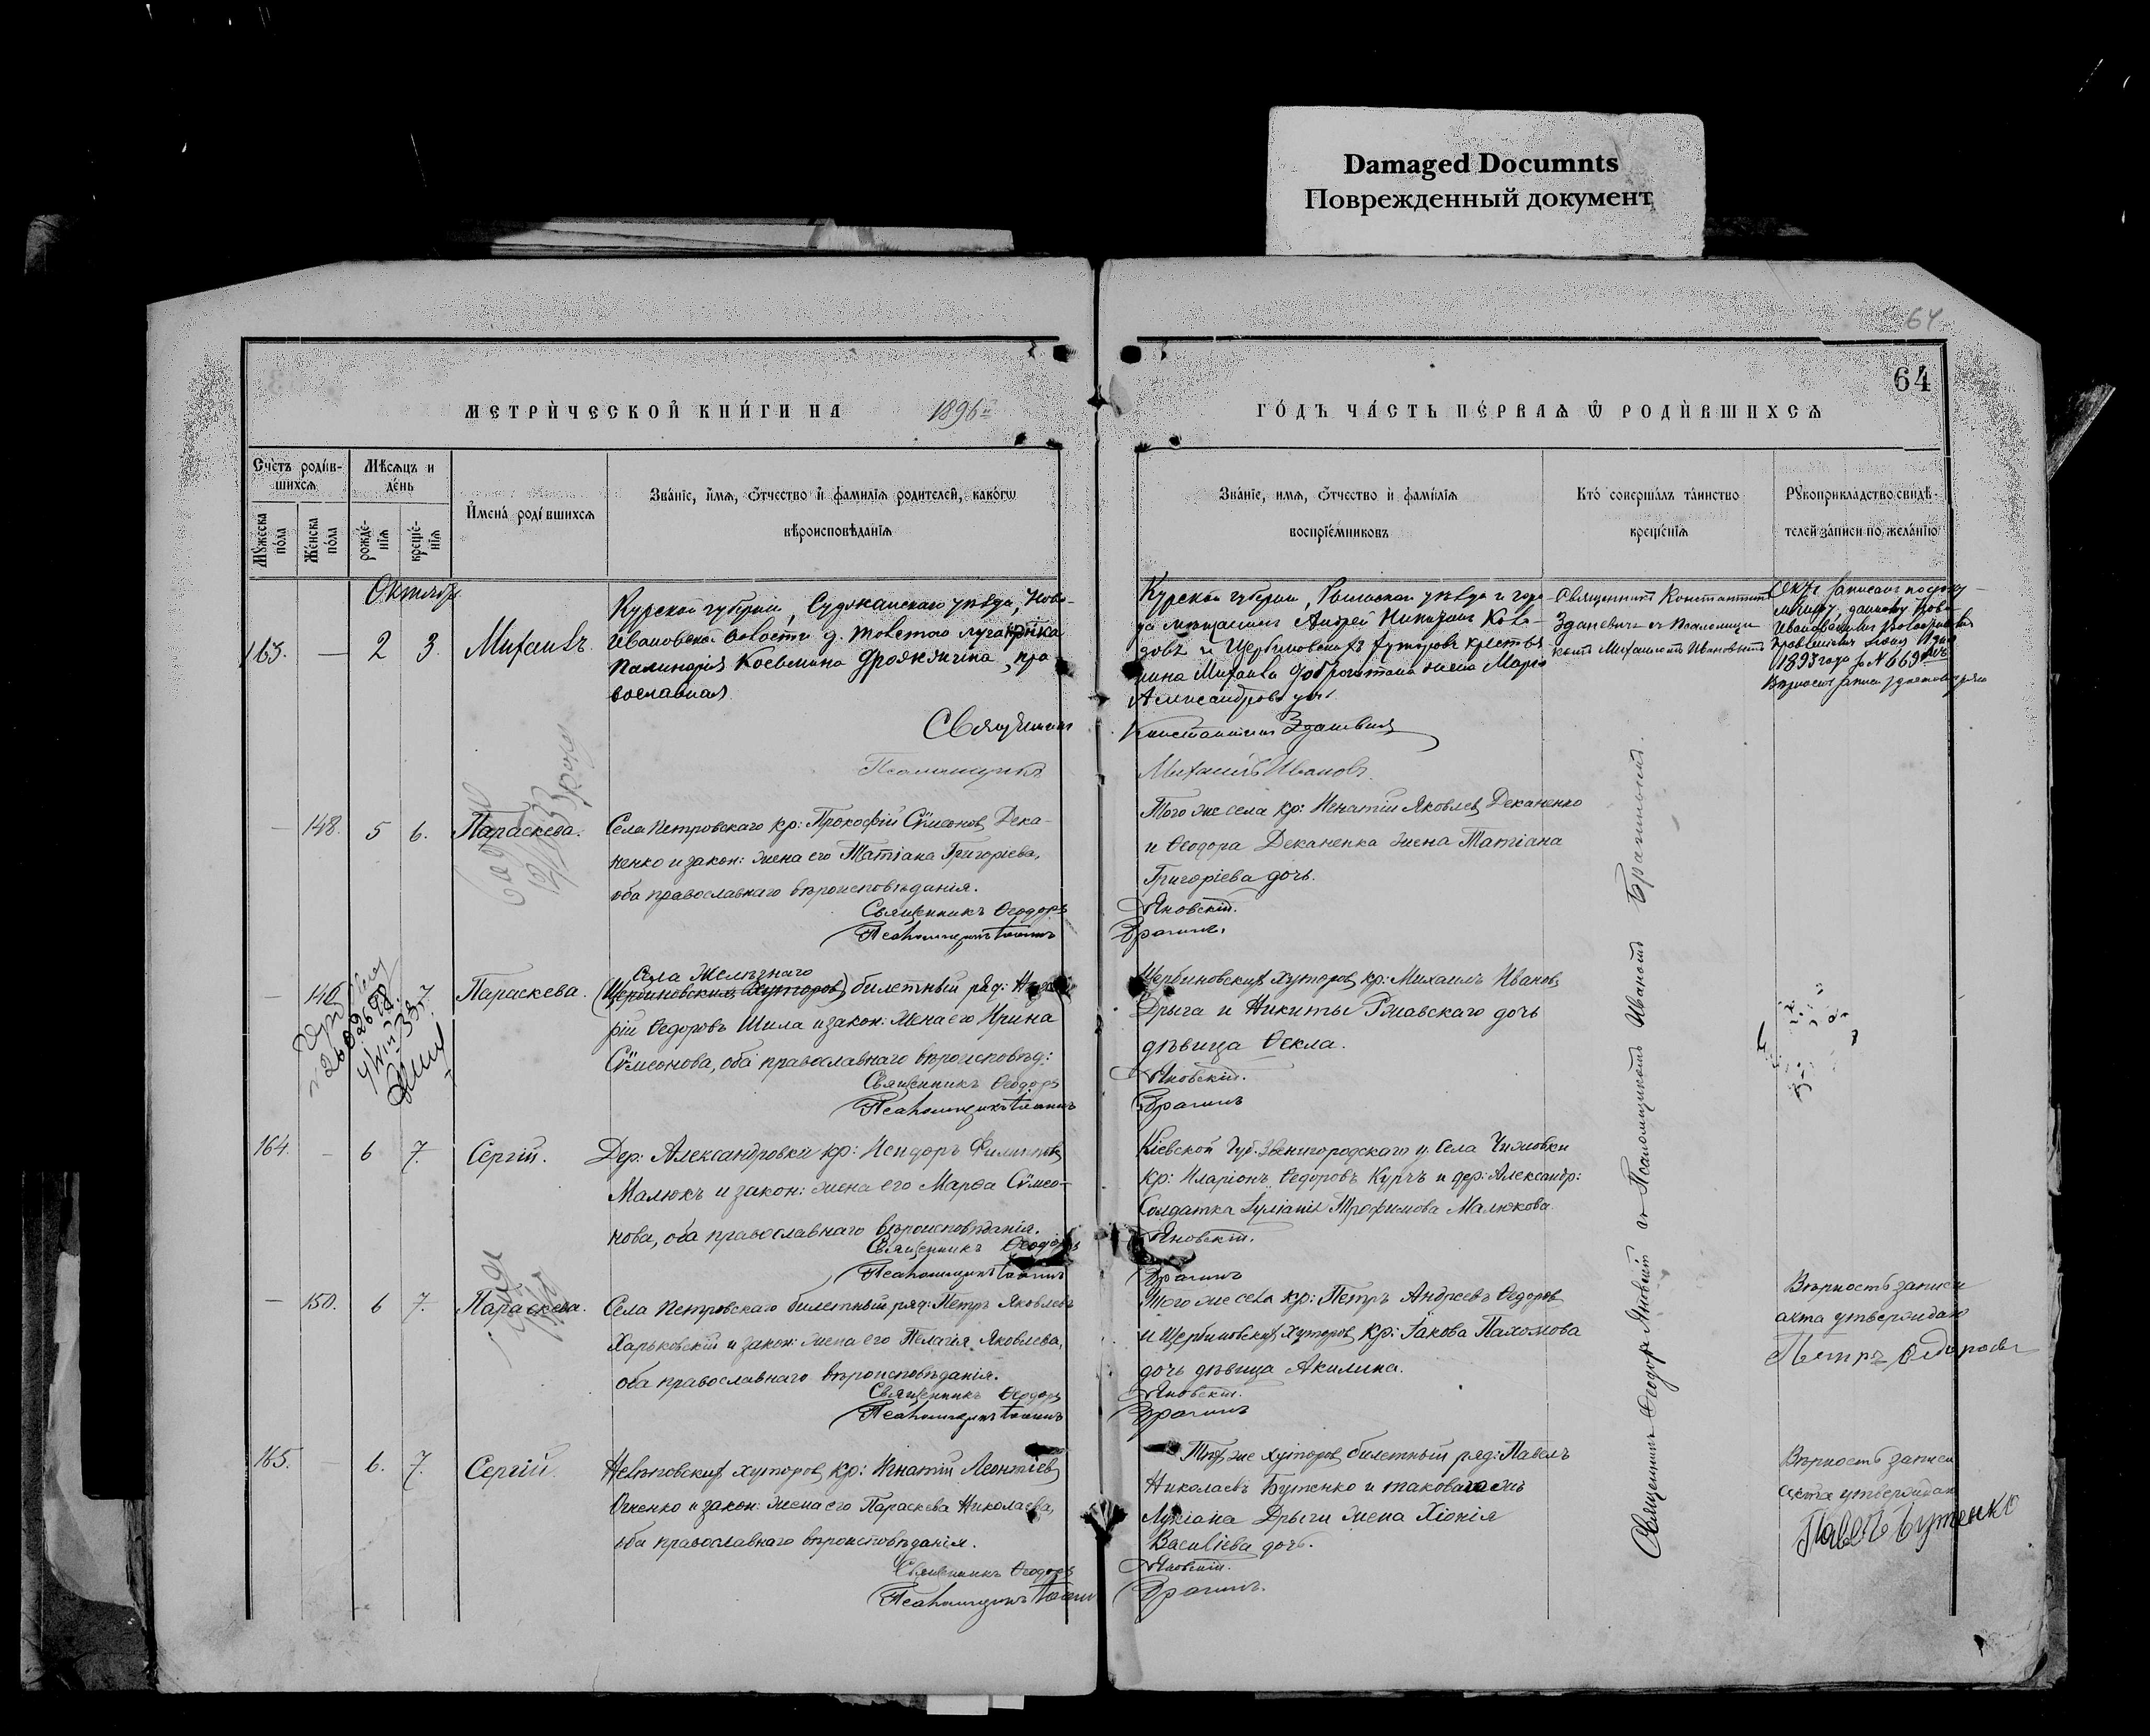 Damaged Documnts
Поврежденный документ
64
64
МЕТРИЧЕСКОЙ КНИГИ НА 1896й
ГОДЪ ЧАСТЬ ПЕРВАЯ Ѿ РОДИВШИХСЯ
Счетъ родив-
шихся
Мѣсяцъ и
день
Мужеска
пола
Женска
пола
рожде-
нія
креще-
нія
Имена родившихся
Званіе, имя, Ѿчество и фамилія родителей, какогѡ
вѣроисповѣданія
Званіе, имя, Ѿчество и фамилія
воспріемниковъ
Кто совершалъ таинство
крещенія
Рукоприкладство свидѣ-
телей записи по желанію
Октябр
163. — 2 3. Михаилъ
Курской губерніи, Суджанскаго уѣзда, Ново-
Ивановской волости д. Толстого
Косьмина, пра
вославная
Священникъ
Псаломщикъ
Курской губерніи, уѣзда и горо
да мѣщанинъ Андрей
и Щербиновскихъ хуторовъ крестья
нина Михаила жена Марія
Александрова дочь
Константинъ Зданевичъ
Михаилъ Ивановъ.
Священникъ Константинъ
Зданевичъ съ Псаломщи
комъ Михаиломъ Ивановымъ
1895 года за № 669
— 148. 5 6. Параскева.
Села Петровскаго кр: Прокофій Сѵмеоновъ Дека-
ненко и закон: жена его Татіана Григоріева,
оба православнаго вѣроисповѣданія.
Священникъ Ѳеодоръ
Псаломщикъ Іоаннъ
Того же села кр: Игнатій Яковлевъ Деканенко
и Ѳеодора Деканенка жена Татіана
Григоріева дочь.
Яновскій.
Брагинъ.
— 149. 7. Параскева.
Села Желѣзнаго
(Щербиновскихъ Хуторовъ) билетный ряд:
рій Ѳедоровъ Шила и закон: жена его Ирина
Сѵмеонова, оба православнаго вѣроисповѣд:
Священникъ Ѳеодоръ
Псаломщикъ Іоаннъ
Щербиновскихъ Хуторовъ кр: Михаилъ Ивановъ
Дрыга и Никиты Ржавскаго дочь
дѣвица Ѳекла.
Яновскій.
Брагинъ
164. — 6 7. Сергій.
Дер: Александровки кр: Исидоръ Филиповъ
Малюкъ и закон: жена его Марѳа Сѵмео-
нова, оба православнаго вѣроисповѣданія.
Священникъ Ѳеодоръ
Псаломщикъ Іоаннъ
Кіевской Губ. Звенигородскаго у. Села Чижовки
кр: Иларіонъ Ѳедоровъ Курчъ и дер: Александр:
Солдатка Іуліанія Трофимова Малюкова.
Яновскій.
Брагинъ
— 150. 6 7. Параскева.
Села Петровскаго билетный ряд: Петръ Яковлевъ
Харьковскій и закон: жена его Пелагія Яковлева,
оба православнаго вѣроисповѣданія.
Священникъ Ѳеодоръ
Псаломщикъ Іоаннъ
Того же села кр: Петръ Андреевъ Ѳедоровъ
и Щербиновскихъ Хуторовъ кр: Іакова Пахомова
дочь дѣвица Акилина.
Яновскій.
Брагинъ
Вѣрность записи
акта утверждаю
Петръ Ѳедоровъ
165. — 6. 7. Сергій.
Нелѣповскихъ хуторовъ кр: Игнатій Леонтіевъ
и закон: жена его Параскева Николаева,
оба православнаго вѣроисповѣданія.
Священникъ Ѳеодоръ
Псаломщикъ Іоаннъ
Тѣхъ же хуторовъ билетный ряд: Павелъ
Николаевъ Бутенко и таковаго же
Лукіана Дрыги жена Хіонія
Василіева дочь.
Яновскій.
Брагинъ.
Вѣрность записи
акта утверждаю
Павелъ Бутенко
Священникъ Ѳеодоръ Яновскій съ Псаломщикомъ Іоанномъ Брагинымъ.